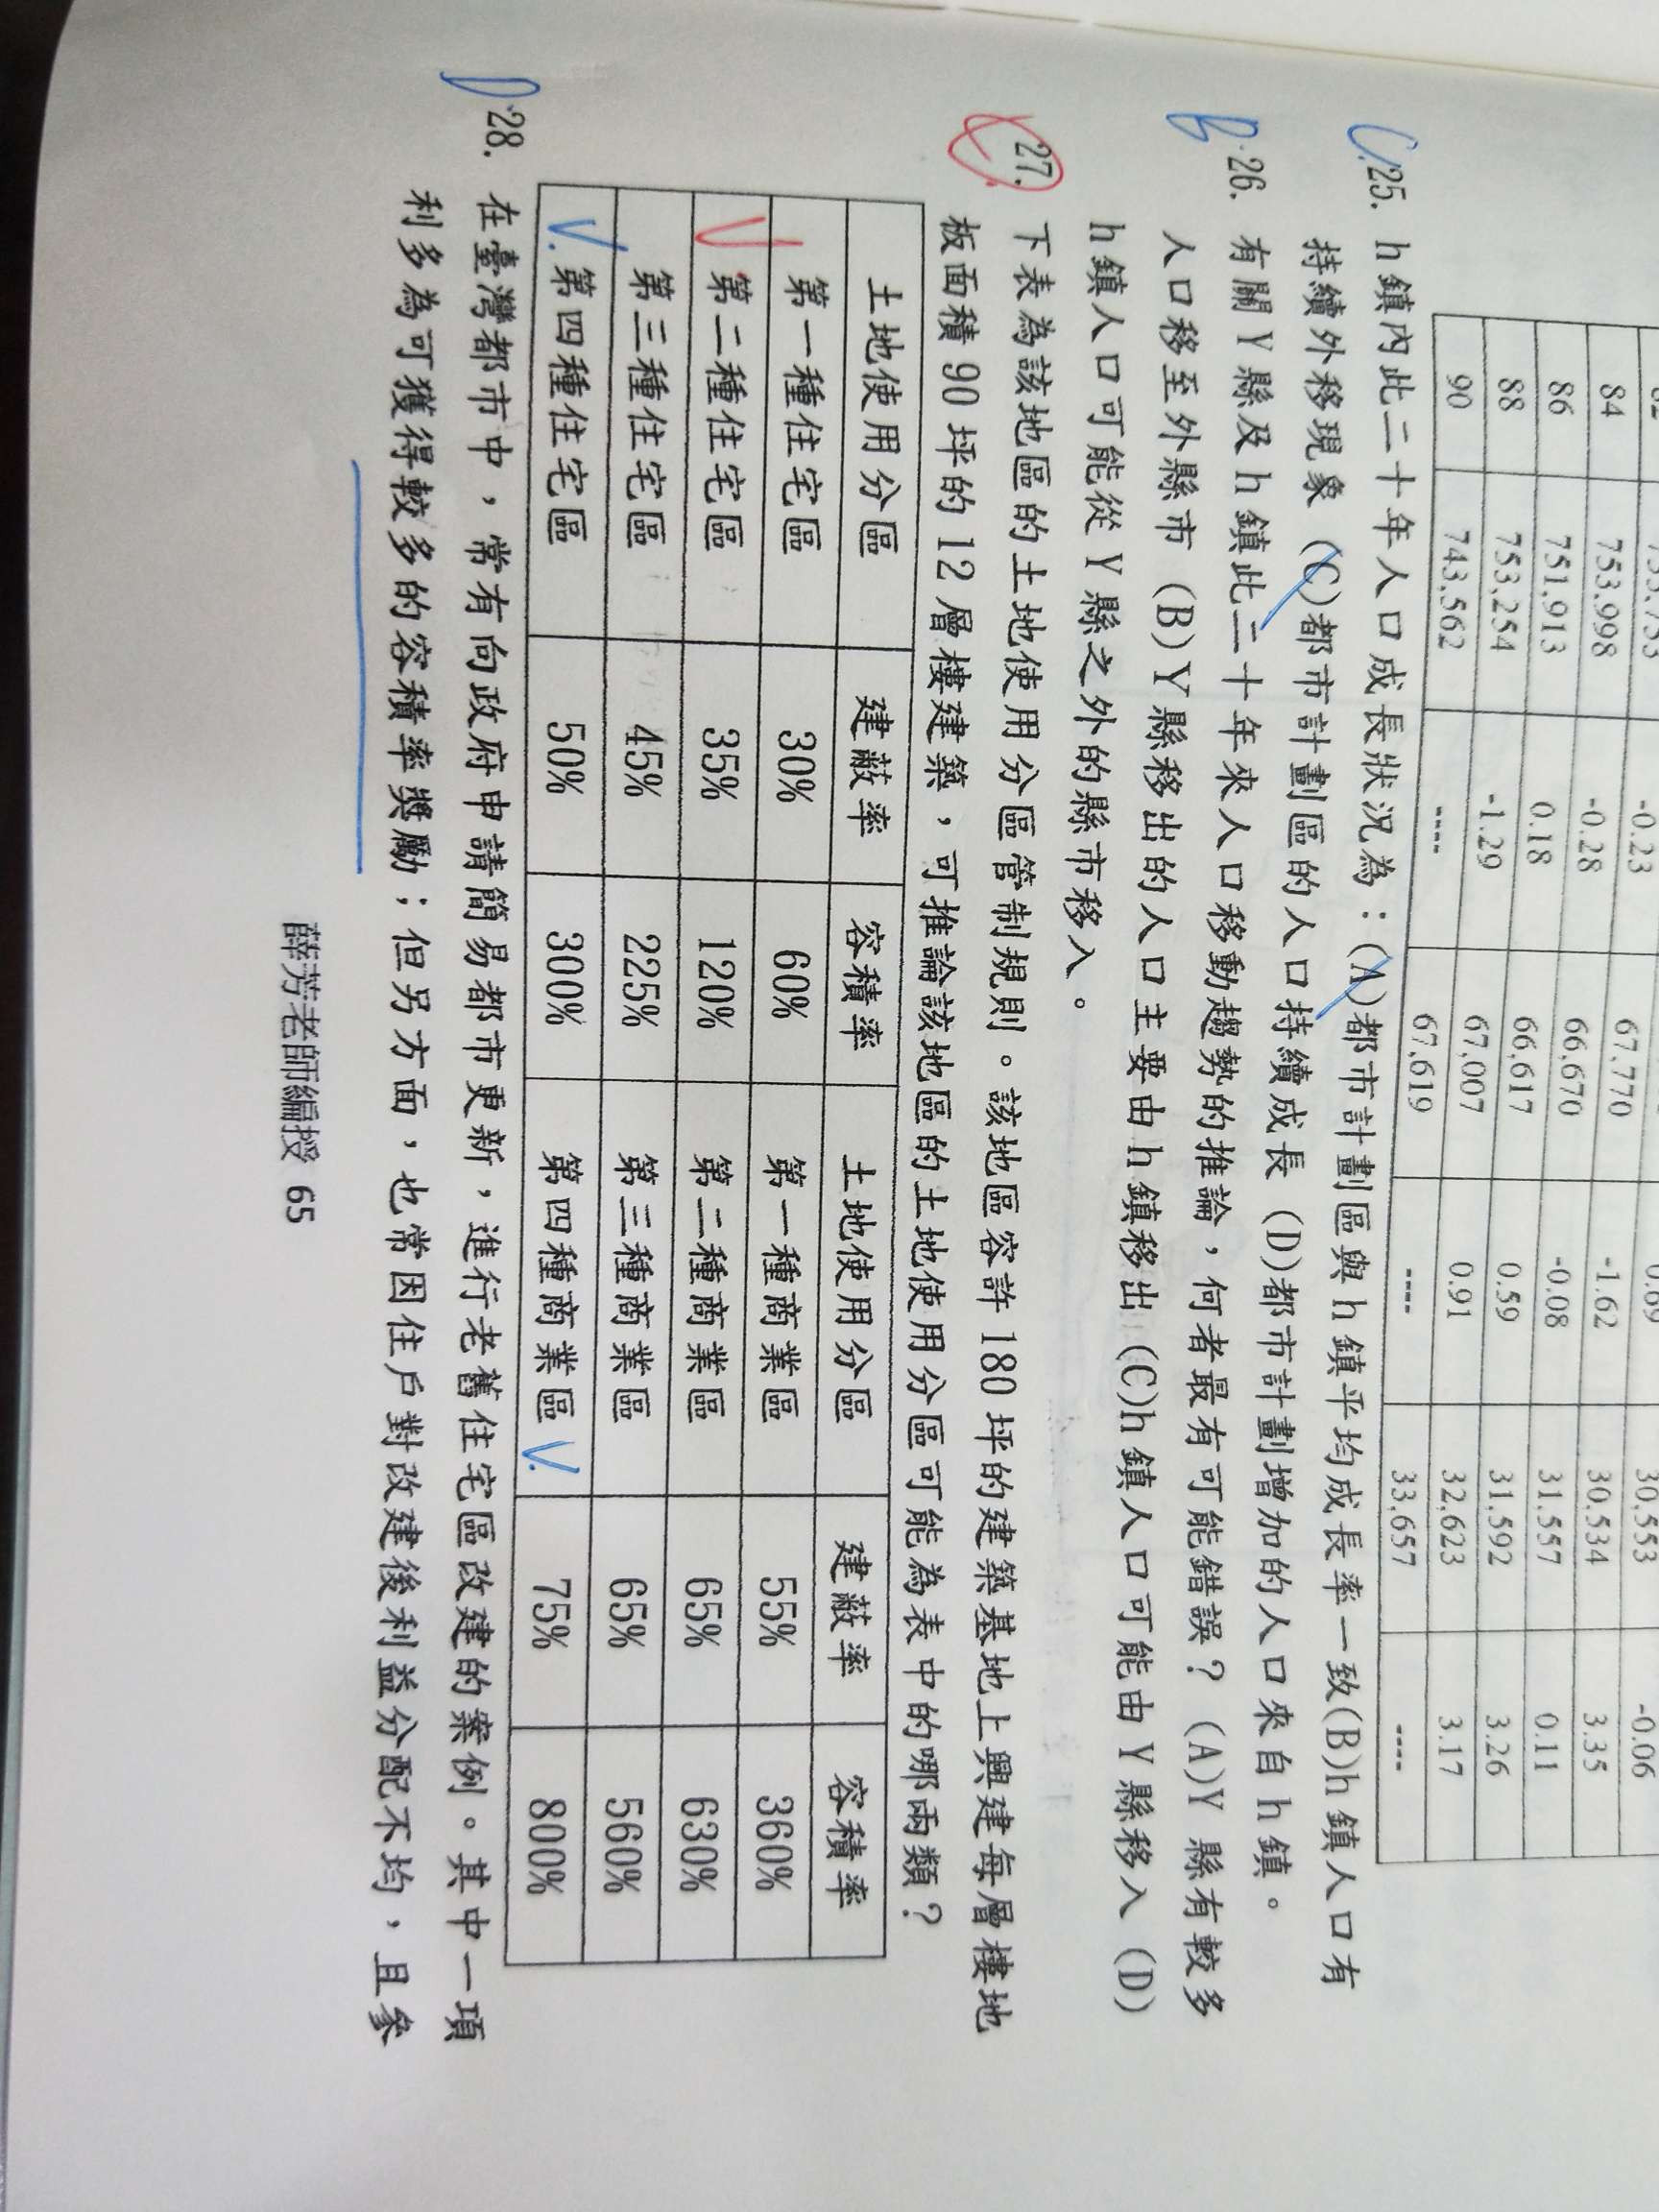 84 753,998 -0.28 67,770 -1.62 30,534 3.35
86 751,913 0.18 66,670 -0.08 31,557 0.11
88 753,254 -1.29 66,617 0.59 31,592 3.26
90 743,562 ---- 67,007 0.91 32,623 3.17
67,619 ---- 33,657 ----
C 25. h鎮內此二十年人口成長狀況為：(A)都市計劃區與h鎮平均成長率一致(B)h鎮人口有
持續外移現象 (C)都市計劃區的人口持續成長 (D)都市計劃增加的人口來自h鎮。
B 26. 有關Y縣及h鎮此二十年來人口移動趨勢的推論，何者最有可能錯誤？(A)Y縣有較多
人口移至外縣市 (B)Y縣移出的人口主要由h鎮移出 (C)h鎮人口可能由Y縣移入 (D)
h鎮人口可能從Y縣之外的縣市移入。
27. 下表為該地區的土地使用分區管制規則。該地區容許180坪的建築基地上興建每層樓地
板面積90坪的12層樓建築，可推論該地區的土地使用分區可能為表中的哪兩類？
土地使用分區 建蔽率 容積率 土地使用分區 建蔽率 容積率
第一種住宅區 30% 60% 第一種商業區 55% 360%
第二種住宅區 35% 120% 第二種商業區 65% 630%
第三種住宅區 45% 225% 第三種商業區 65% 560%
第四種住宅區 50% 300% 第四種商業區 75% 800%
D 28. 在臺灣都市中，常有向政府申請簡易都市更新，進行老舊住宅區改建的案例。其中一項
利多為可獲得較多的容積率獎勵；但另方面，也常因住戶對改建後利益分配不均，且參
薛芳老師編授 65